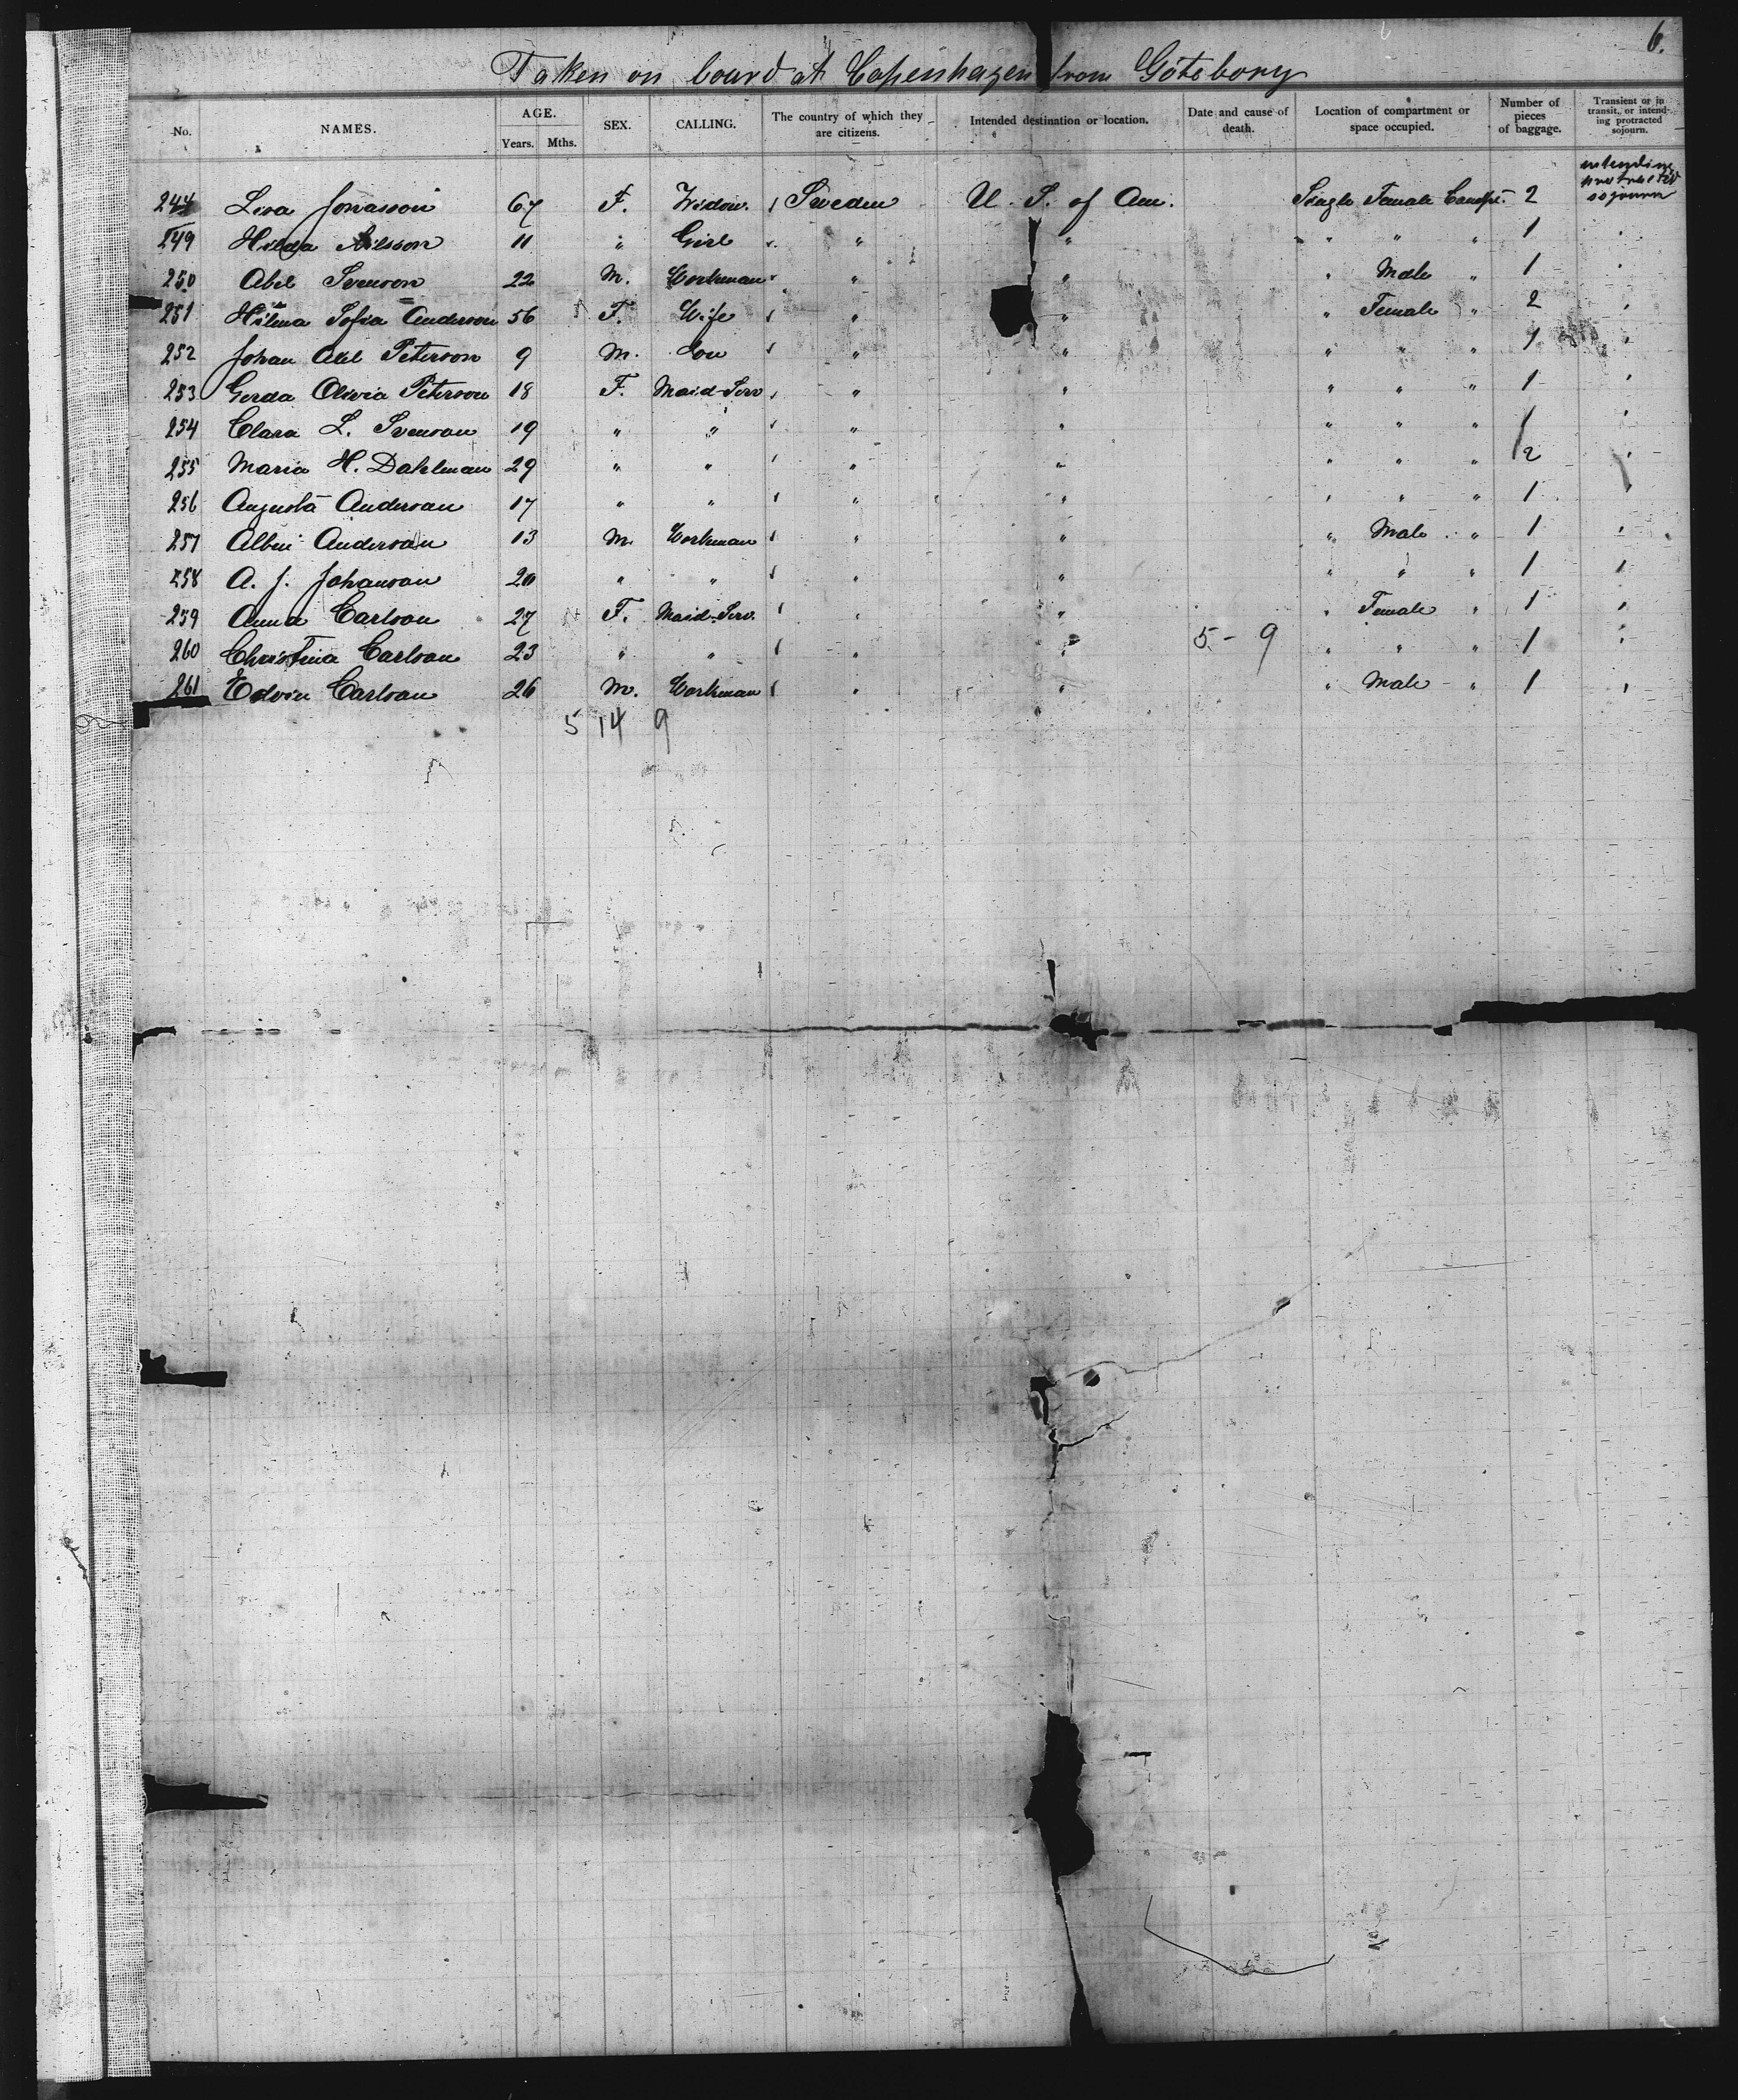 6.
Taken on board at Copenhagen from Göteborg
No. NAMES. AGE. Years. Mths. SEX. CALLING. The country of which they are citizens. Intended destination or location. Date and cause of death. Location of compartment or space occupied. Number of pieces of baggage. Transient or in transit, or intending protracted sojourn.
intending protracted sojourn
244 Lisa Jonasson 67 F. Widow. Sweden U. S. of Am. Single Female Compt. 2
249 Hilda Nilsson 11 " Girl " " " " " 1 "
250 Abel Svenson 22 M. Workman " " " Male " 1 "
251 Hilma Sofia Anderson 56 F. Wife " " " Female " 2 "
252 Johan Axel Peterson 9 M. Son " " " " " 1 "
253 Gerda Olivia Peterson 18 F. Maid-Serv " " " " " 1 "
254 Clara L. Svenson 19 " " " " " " " 1 "
255 Maria H. Dahlman 29 " " " " " " " 2 "
256 Augusta Anderson 17 " " " " " " " 1 "
257 Albin Anderson 13 M. Workman " " " Male " 1 "
258 A. J. Johanson 20 " " " " " " " 1 "
259 Anna Carlson 27 F. Maid-Serv. " " " Female " 1 "
260 Christina Carlson 23 " " " " 5 - 9 " " " 1 "
261 Edvin Carlson 26 M. Workman " " " Male " 1 "
5 14 9